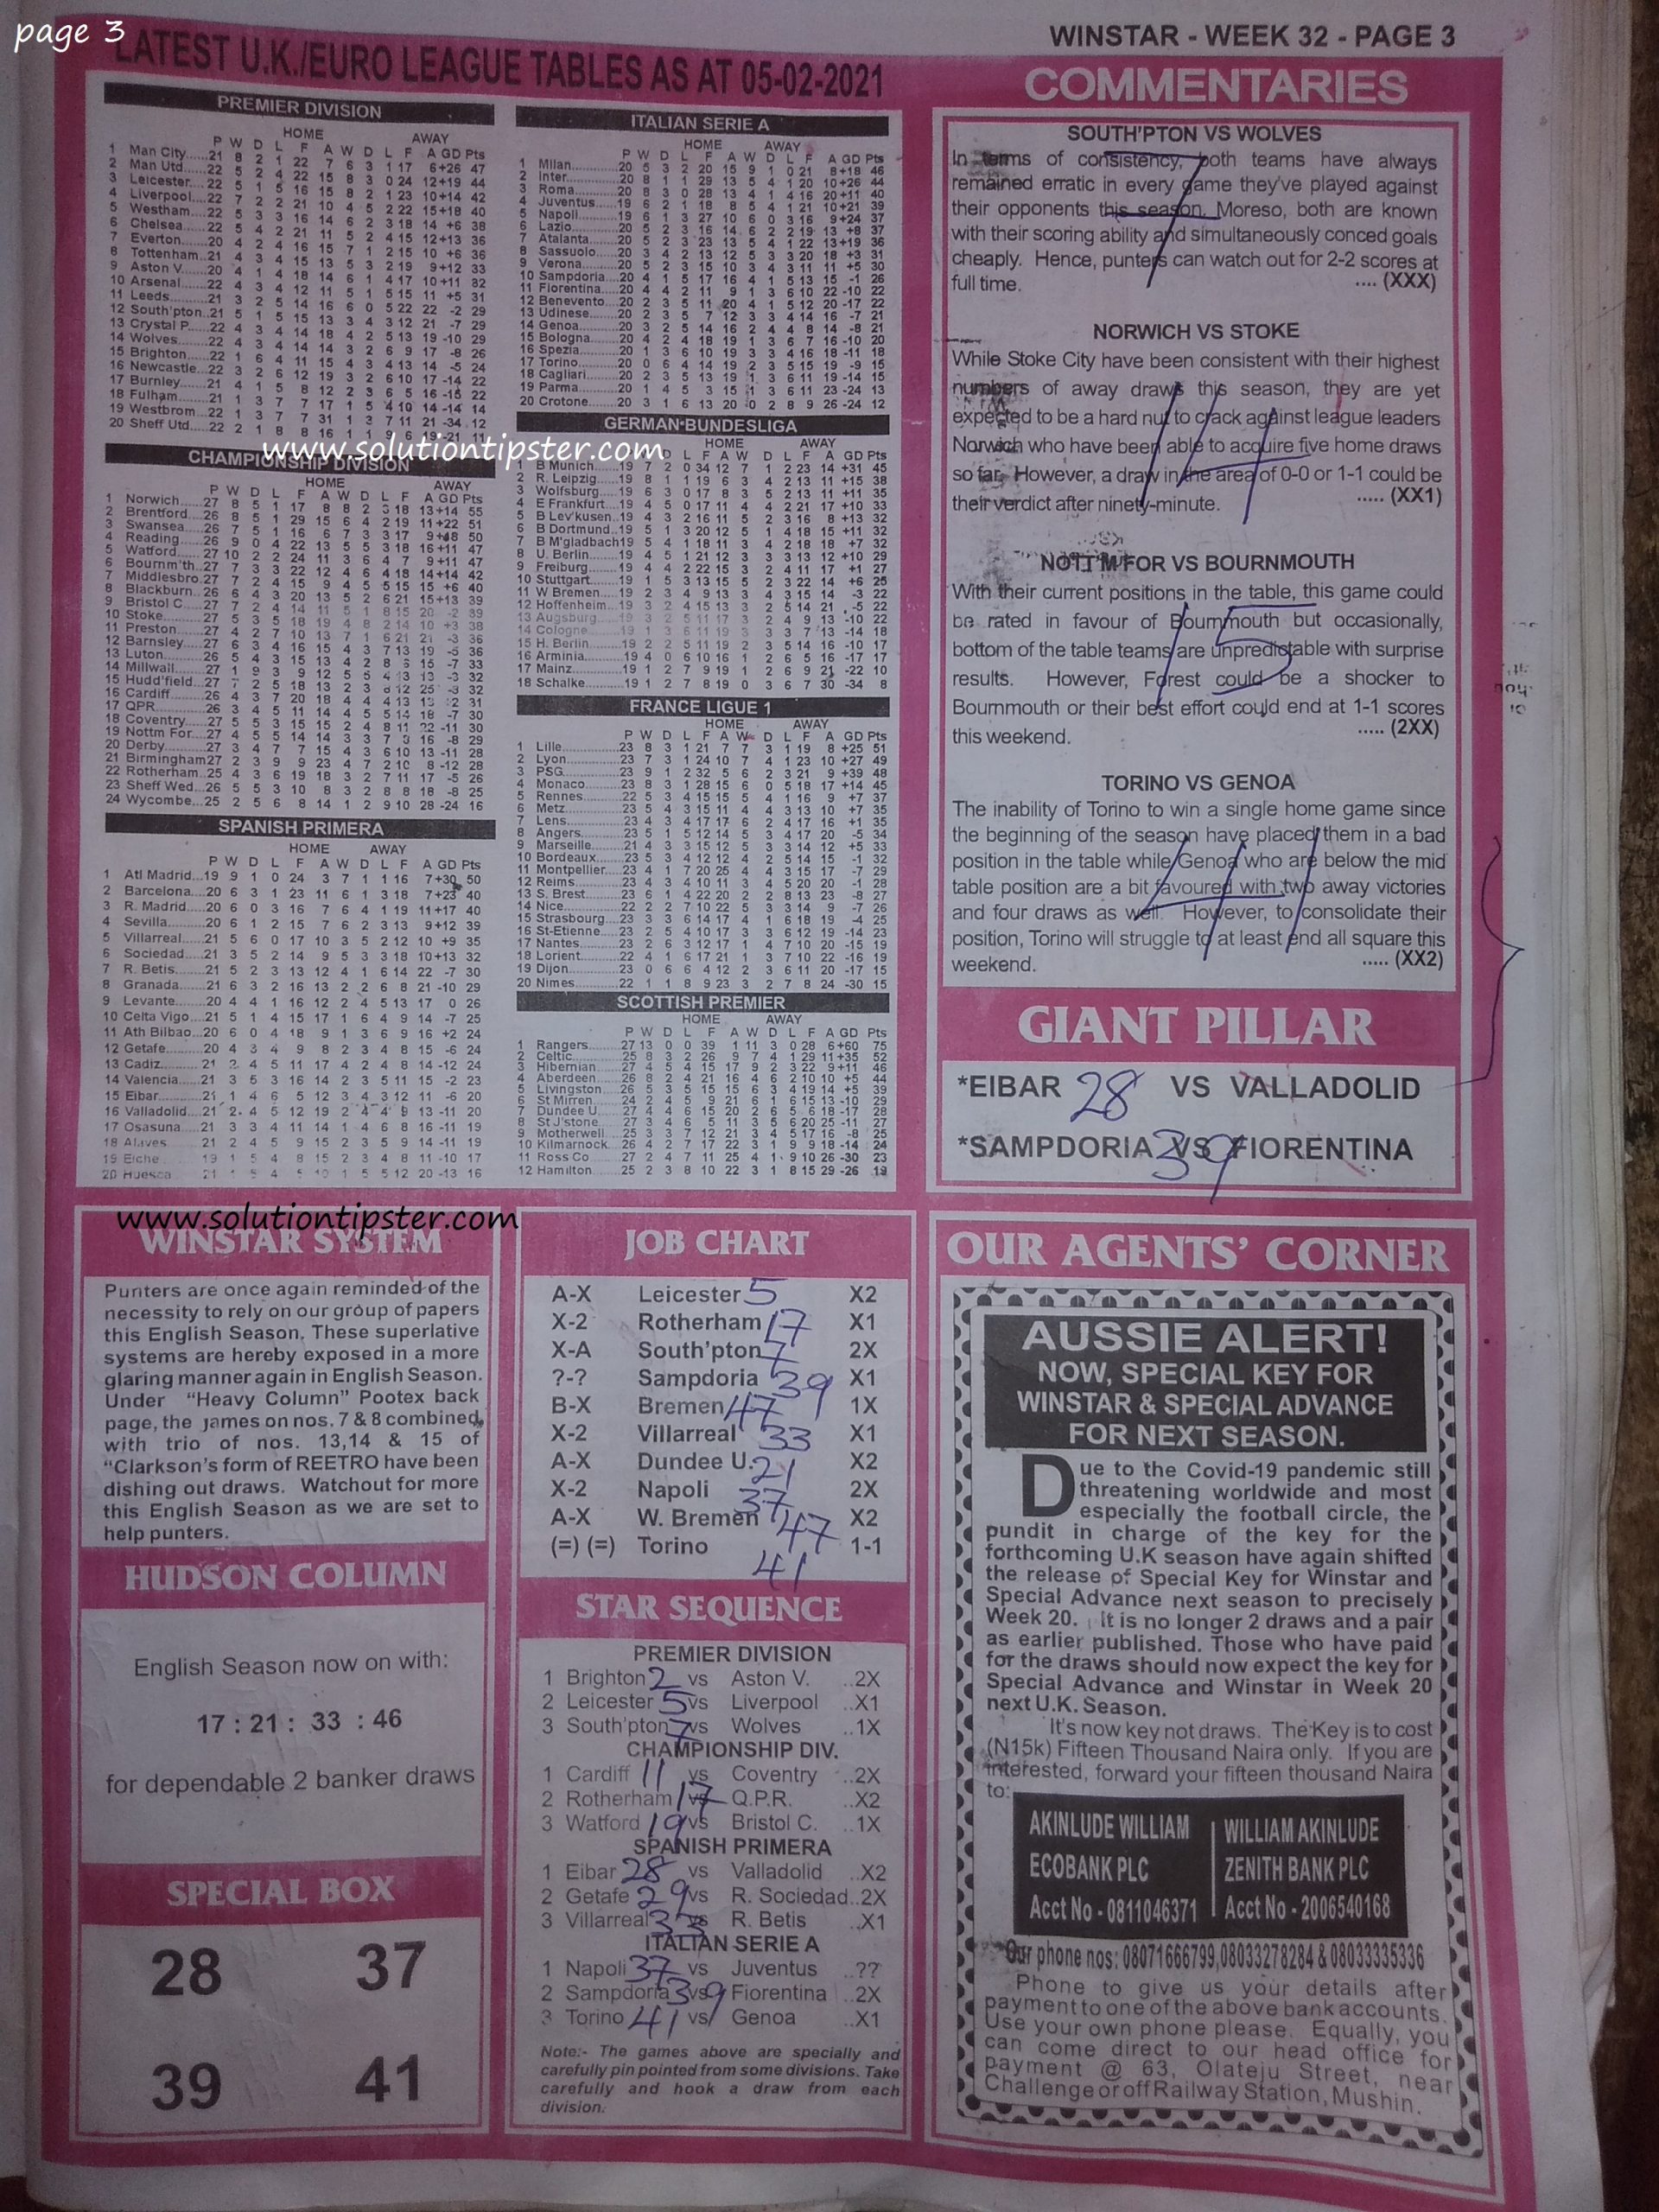 page 3
WINSTAR - WEEK 32 - PAGE 3
LATEST U.K./EURO LEAGUE TABLES AS AT 05-02-2021
PREMIER DIVISION
HOME AWAY
P W D L F A W D L F A GD Pts
1 Man City......21 8 2 1 22 7 6 3 1 17 6+26 47
2 Man Utd......22 5 2 4 22 15 8 3 0 24 12+19 44
3 Leicester.....22 5 1 5 16 15 8 2 1 23 10+14 42
4 Liverpool.....22 7 2 2 21 10 4 5 2 22 15+18 40
5 Westham.....22 5 3 3 16 14 6 2 3 18 14 +6 38
6 Chelsea......22 5 4 2 21 11 5 2 4 15 12+13 36
7 Everton.......20 4 2 4 16 15 7 1 2 15 10 +6 36
8 Tottenham..21 4 3 4 15 13 5 3 2 19 9+12 33
9 Aston V.......20 4 1 4 18 14 6 1 4 17 10+11 82
10 Arsenal.......22 4 3 4 12 11 5 1 5 15 11 +5 31
11 Leeds.........21 3 2 5 14 16 6 0 5 22 22 -2 29
12 South'pton..21 5 1 5 15 13 3 4 3 12 21 -7 29
13 Crystal P.....22 4 3 4 14 18 4 2 5 13 19 -10 29
14 Wolves.......22 4 3 4 14 14 3 2 6 9 17 -8 26
15 Brighton......22 1 6 4 11 15 4 3 4 13 14 -5 24
16 Newcastle...22 3 2 6 12 19 3 2 6 10 17 -14 22
17 Burnley.......21 4 1 5 8 12 2 3 6 5 16 -15 22
18 Fulham.......21 1 3 7 7 17 1 5 4 10 14 -14 14
19 Westbrom...22 1 3 7 7 31 1 3 7 11 21 -34 12
20 Sheff Utd.....22 2 1 8 8 16 1 1 9 6 19 -21 11
www.solutiontipster.com
CHAMPIONSHIP DIVISION
HOME AWAY
P W D L F A W D L F A GD Pts
1 Norwich......27 8 5 1 17 8 8 2 3 18 13+14 55
2 Brentford....26 8 5 1 29 15 6 4 2 19 11+22 51
3 Swansea....26 7 5 1 16 6 7 3 3 17 9+18 50
4 Reading.....26 9 0 4 22 13 5 5 3 18 16+11 47
5 Watford......27 10 2 2 24 11 3 6 4 7 9+11 47
6 Bournm'th...27 7 3 3 22 12 4 6 4 18 14+14 42
7 Middlesbro.27 7 2 4 15 9 4 5 5 15 15 +6 40
8 Blackburn...26 6 4 3 20 13 5 2 6 21 15+13 39
9 Bristol C.....27 7 2 4 14 11 5 1 8 15 20 -2 39
10 Stoke........27 5 3 5 18 19 4 8 2 14 10 +3 38
11 Preston......27 4 2 7 10 13 7 1 6 21 21 -3 36
12 Barnsley....27 6 3 4 16 15 4 3 7 13 19 -5 36
13 Luton........26 5 4 3 15 13 4 2 8 15 -7 33
14 Millwall......27 1 9 3 9 12 5 5 4 13 13 -3 32
15 Hudd'field...27 7 2 5 18 13 2 3 8 12 25 -3 32
16 Cardiff.......26 4 3 7 20 18 4 4 4 13 -2 31
17 QPR..........26 3 4 5 11 14 4 5 5 14 18 -7 30
18 Coventry...27 5 5 3 15 15 2 4 8 11 22 -11 30
19 Nottm For...27 4 5 5 14 14 3 3 7 16 -8 29
20 Derby........27 3 4 7 7 15 4 3 6 10 13 -11 28
21 Birmingham27 2 3 9 9 23 4 7 2 10 8 -12 28
22 Rotherham..25 4 3 6 19 18 3 2 7 11 17 -5 26
23 Sheff Wed...26 5 5 3 10 8 3 2 8 8 18 -8 25
24 Wycombe...25 2 5 6 8 14 1 2 9 10 28 -24 16
SPANISH PRIMERA
HOME AWAY
P W D L F A W D L F A GD Pts
1 Atl Madrid...19 9 1 0 24 3 7 1 1 16 7+30 50
2 Barcelona...20 6 3 1 23 11 6 1 3 18 7+23 40
3 R. Madrid....20 6 0 3 16 7 6 4 1 19 11+17 40
4 Sevilla........20 6 1 2 15 7 6 2 3 13 9+12 39
5 Villarreal.....21 5 6 0 17 10 3 5 2 12 10 +9 35
6 Sociedad....21 3 5 2 14 9 5 3 3 18 10+13 32
7 R. Betis......21 5 2 3 13 12 4 1 6 14 22 -7 30
8 Granada.....21 6 3 2 16 13 2 2 6 8 21 -10 29
9 Levante......20 4 4 1 16 12 2 4 5 13 17 0 26
10 Celta Vigo...21 5 1 4 15 17 1 6 4 9 14 -7 25
11 Ath Bilbao...20 6 0 4 18 9 1 3 6 9 16 +2 24
12 Getafe........20 4 3 4 9 8 2 3 4 8 15 -6 24
13 Cadiz.........21 2 4 5 11 17 4 2 4 8 14 -12 24
14 Valencia.....21 3 5 3 16 14 2 3 5 11 15 -2 23
15 Eibar.........21 1 4 6 5 12 3 4 3 12 11 -6 20
16 Valladolid...21 2 4 5 12 19 2 4 4 9 13 -11 20
17 Osasuna....21 3 3 4 11 14 1 4 6 8 16 -11 19
18 Alaves.......21 2 4 5 9 15 2 3 5 9 14 -11 19
19 Elche........19 1 5 4 8 15 2 3 4 8 11 -10 17
20 Huesca 21 5 4 1 5 5 12 20 -13 16
ITALIAN SERIE A
HOME AWAY
P W D L F A W D L F A GD Pts
1 Milan.........20 5 3 2 20 15 9 1 0 21 8+18 46
2 Inter...........20 8 1 1 29 13 5 4 1 20 10+26 44
3 Roma.........20 8 3 0 28 13 4 1 4 16 20+11 40
4 Juventus.....19 6 2 1 18 8 5 4 1 21 10+21 39
5 Napoli........19 6 1 3 27 10 6 0 3 16 9+24 37
6 Lazio.........20 5 2 3 16 14 6 2 2 19 13 +8 37
7 Atalanta.....20 5 2 3 23 13 5 4 1 22 13+19 36
8 Sassuolo....20 3 4 2 13 12 5 3 3 20 18 +3 31
9 Verona.......20 5 2 3 15 10 3 4 3 11 11 +5 30
10 Sampdoria..20 4 1 5 17 16 4 1 5 13 15 -1 26
11 Fiorentina...20 4 4 2 11 9 1 3 6 10 22 -10 22
12 Benevento...20 2 3 5 11 20 4 1 5 12 20 -17 22
13 Udinese......20 2 3 5 7 12 3 3 4 14 16 -7 21
14 Genoa........20 3 2 5 14 16 2 4 4 8 14 -8 21
15 Bologna......20 4 2 4 18 19 1 3 6 7 16 -10 20
16 Spezia........20 1 3 6 10 19 3 3 4 16 18 -11 18
17 Torino........20 0 6 4 14 19 2 3 5 15 19 -9 15
18 Cagliari......20 2 3 5 13 19 1 3 6 11 19 -14 15
19 Parma........20 1 4 5 3 15 1 3 6 11 23 -24 13
20 Crotone......20 3 1 6 13 20 0 2 8 9 26 -24 12
GERMAN BUNDESLIGA
HOME AWAY
D L F A W D L F A GD Pts
1 B Munich......19 7 2 0 34 12 7 1 2 23 14 +31 45
2 R. Leipzig.....19 8 1 1 19 6 3 4 2 13 11 +15 38
3 Wolfsburg.....19 6 3 0 17 8 3 5 2 13 11 +11 35
4 E Frankfurt...19 4 5 0 17 11 4 4 2 21 17 +10 33
5 B Lev'kusen..19 4 3 2 16 11 5 2 3 16 8 +13 32
6 B Dortmund..19 5 1 3 20 12 5 1 4 18 15 +11 32
7 B M'gladbach19 5 4 1 18 11 3 4 2 18 18 +7 32
8 U. Berlin.......19 4 5 1 21 12 3 3 3 13 12 +10 29
9 Freiburg.......19 4 4 2 22 15 3 2 4 11 17 +1 27
10 Stuttgart......19 1 5 3 13 15 5 2 3 22 14 +6 25
11 W Bremen....19 2 3 4 9 13 3 4 3 15 14 -3 22
12 Hoffenheim..19 3 2 4 15 13 3 2 5 14 21 -5 22
13 Augsburg.....19 3 2 5 11 17 3 2 4 9 13 -10 22
14 Cologne.......19 1 3 6 11 19 3 3 3 7 13 -14 18
15 H. Berlin.....19 2 2 5 11 19 2 3 5 14 16 -10 17
16 Arminia........19 4 0 6 10 16 1 2 6 5 16 -17 17
17 Mainz..........19 1 2 7 9 19 1 2 6 9 21 -22 10
18 Schalke........19 1 2 7 8 19 0 3 6 7 30 -34 8
FRANCE LIGUE 1
HOME AWAY
P W D L F A W D L F A GD Pts
1 Lille............23 8 3 1 21 7 7 3 1 19 8 +25 51
2 Lyon...........23 7 3 1 24 10 7 4 1 23 10 +27 49
3 PSG............23 9 1 2 32 5 6 2 3 21 9 +39 48
4 Monaco.......23 8 3 1 28 15 6 0 5 18 17 +14 45
5 Rennes.......22 5 3 4 15 15 5 4 1 16 9 +7 37
6 Metz...........23 5 4 3 15 11 4 4 3 13 10 +7 35
7 Lens...........23 4 3 4 17 17 6 2 4 17 16 +1 35
8 Angers........23 5 1 5 12 14 5 3 4 17 20 -5 34
9 Marseille......21 4 3 3 15 12 5 3 3 14 12 +5 33
10 Bordeaux....23 5 3 4 12 12 4 2 5 14 15 -1 32
11 Montpellier..23 4 1 7 20 25 4 4 3 15 17 -7 29
12 Reims.........23 4 3 4 10 11 3 4 5 20 20 -1 28
13 S. Brest......23 6 1 4 22 20 2 2 8 13 23 -8 27
14 Nice...........22 2 2 7 10 22 5 3 3 14 9 -7 26
15 Strasbourg...23 3 3 6 14 17 4 1 6 18 19 -4 25
16 St-Etienne...23 2 5 4 10 17 3 3 6 12 19 -14 23
17 Nantes.......23 2 6 3 12 17 1 4 7 10 20 -15 19
18 Lorient.......22 4 1 6 17 21 1 3 7 10 22 -16 19
19 Dijon.........23 0 6 6 4 12 2 3 6 11 20 -17 15
20 Nimes........22 1 1 8 9 23 3 2 7 8 24 -30 15
SCOTTISH PREMIER
HOME AWAY
P W D L F A W D L F A GD Pts
1 Rangers......27 13 0 0 39 1 11 3 0 28 6+60 75
2 Celtic.........25 8 3 2 26 9 7 4 1 29 11+35 52
3 Hibernian....27 4 5 4 15 17 9 2 3 22 9+11 46
4 Aberdeen....26 8 2 4 21 16 4 6 2 10 10 +5 44
5 Livingston...26 5 3 5 15 15 6 3 4 19 14 +5 39
6 St Mirren.....24 2 4 5 9 21 6 1 6 15 13 -10 29
7 Dundee U....27 4 4 6 15 20 2 6 5 6 18 -17 28
8 St J'stone....27 3 4 6 5 11 3 5 6 20 25 -11 27
9 Motherwell..25 3 3 7 12 21 3 4 5 17 16 -8 25
10 Kilmarnock..26 4 2 7 17 22 3 1 9 9 18 -14 24
11 Ross Co......27 2 4 7 11 25 4 1 9 10 26 -30 23
12 Hamilton.....25 2 3 8 10 22 3 1 8 15 29 -26 19
COMMENTARIES
SOUTH'PTON VS WOLVES
In terms of consistency, both teams have always
remained erratic in every game they've played against
their opponents this season. Moreso, both are known
with their scoring ability and simultaneously conced goals
cheaply. Hence, punters can watch out for 2-2 scores at
full time. .... (XXX)
7
NORWICH VS STOKE
While Stoke City have been consistent with their highest
numbers of away draws this season, they are yet
expected to be a hard nut to crack against league leaders
Norwich who have been able to acquire five home draws
so far. However, a draw in the area of 0-0 or 1-1 could be
their verdict after ninety-minute. ..... (XX1)
14
NOTT'M FOR VS BOURNMOUTH
With their current positions in the table, this game could
be rated in favour of Bournmouth but occasionally,
bottom of the table teams are unpredictable with surprise
results. However, Forest could be a shocker to
Bournmouth or their best effort could end at 1-1 scores
this weekend. ..... (2XX)
15
TORINO VS GENOA
The inability of Torino to win a single home game since
the beginning of the season have placed them in a bad
position in the table while Genoa who are below the mid
table position are a bit favoured with two away victories
and four draws as well. However, to consolidate their
position, Torino will struggle to at least end all square this
weekend. ..... (XX2)
41
GIANT PILLAR
*EIBAR 28 VS VALLADOLID
*SAMPDORIA 39 VS FIORENTINA
www.solutiontipster.com
WINSTAR SYSTEM
Punters are once again reminded of the
necessity to rely on our group of papers
this English Season. These superlative
systems are hereby exposed in a more
glaring manner again in English Season.
Under "Heavy Column" Pootex back
page, the games on nos. 7 & 8 combined
with trio of nos. 13,14 & 15 of
"Clarkson's form of REETRO have been
dishing out draws. Watchout for more
this English Season as we are set to
help punters.
HUDSON COLUMN
English Season now on with:
17 : 21 : 33 : 46
for dependable 2 banker draws
SPECIAL BOX
28 37
39 41
JOB CHART
A-X Leicester 5 X2
X-2 Rotherham 17 X1
X-A South'pton 7 2X
?-? Sampdoria 39 X1
B-X Bremen 47 1X
X-2 Villarreal 33 X1
A-X Dundee U. 21 X2
X-2 Napoli 37 2X
A-X W. Bremen 47 X2
(=) (=) Torino 41 1-1
STAR SEQUENCE
PREMIER DIVISION
1 Brighton 2 vs Aston V. ..2X
2 Leicester 5 vs Liverpool ..X1
3 South'pton 7 vs Wolves ..1X
CHAMPIONSHIP DIV.
1 Cardiff 11 vs Coventry ..2X
2 Rotherham 17 vs Q.P.R. ..X2
3 Watford 19 vs Bristol C. ..1X
SPANISH PRIMERA
1 Eibar 28 vs Valladolid ..X2
2 Getafe 29 vs R. Sociedad..2X
3 Villarreal 33 vs R. Betis ..X1
ITALIAN SERIE A
1 Napoli 37 vs Juventus ..??
2 Sampdoria 39 vs Fiorentina ..2X
3 Torino 41 vs Genoa ..X1
Note:- The games above are specially and
carefully pin pointed from some divisions. Take
carefully and hook a draw from each
division.
OUR AGENTS' CORNER
AUSSIE ALERT!
NOW, SPECIAL KEY FOR
WINSTAR & SPECIAL ADVANCE
FOR NEXT SEASON.
Due to the Covid-19 pandemic still
threatening worldwide and most
especially the football circle, the
pundit in charge of the key for the
forthcoming U.K season have again shifted
the release of Special Key for Winstar and
Special Advance next season to precisely
Week 20. It is no longer 2 draws and a pair
as earlier published. Those who have paid
for the draws should now expect the key for
Special Advance and Winstar in Week 20
next U.K. Season.
It's now key not draws. The Key is to cost
(N15k) Fifteen Thousand Naira only. If you are
interested, forward your fifteen thousand Naira
to:
AKINLUDE WILLIAM
ECOBANK PLC
Acct No - 0811046371
WILLIAM AKINLUDE
ZENITH BANK PLC
Acct No - 2006540168
Our phone nos: 08071666799,08033278284 & 08033335336
Phone to give us your details after
payment to one of the above bank accounts.
Use your own phone please. Equally, you
can come direct to our head office for
payment @ 63, Olateju Street, near
Challenge or off Railway Station, Mushin.